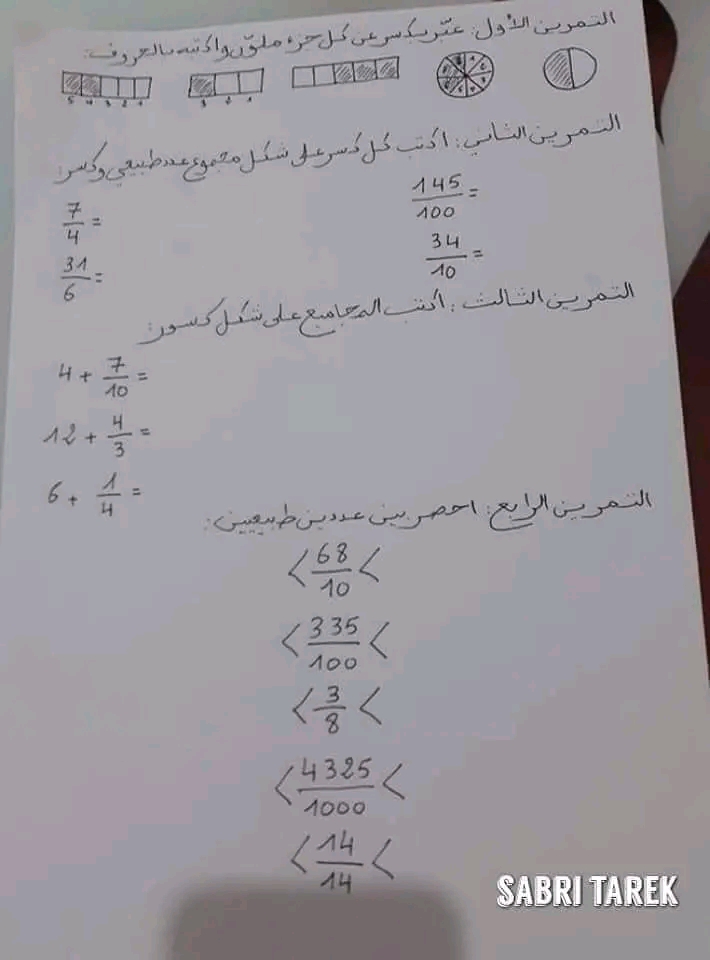 التمرين الأول: عبّر بكسر عن كل جزء ملوّن واكتبه بالحروف:
5 4 3 2 1
3 2 1
التمرين الثاني: اكتب كل كسر على شكل مجموع عدد طبيعي وكسر:
7/4 =
145/100 =
31/6 =
34/10 =
التمرين الثالث: أكتب المجاميع على شكل كسور:
4 + 7/10 =
12 + 4/3 =
6 + 1/4 =
التمرين الرابع: احصر بين عددين طبيعيين:
< 68/10 <
< 335/100 <
< 3/8 <
< 4325/1000 <
< 14/14 <
SABRI TAREK